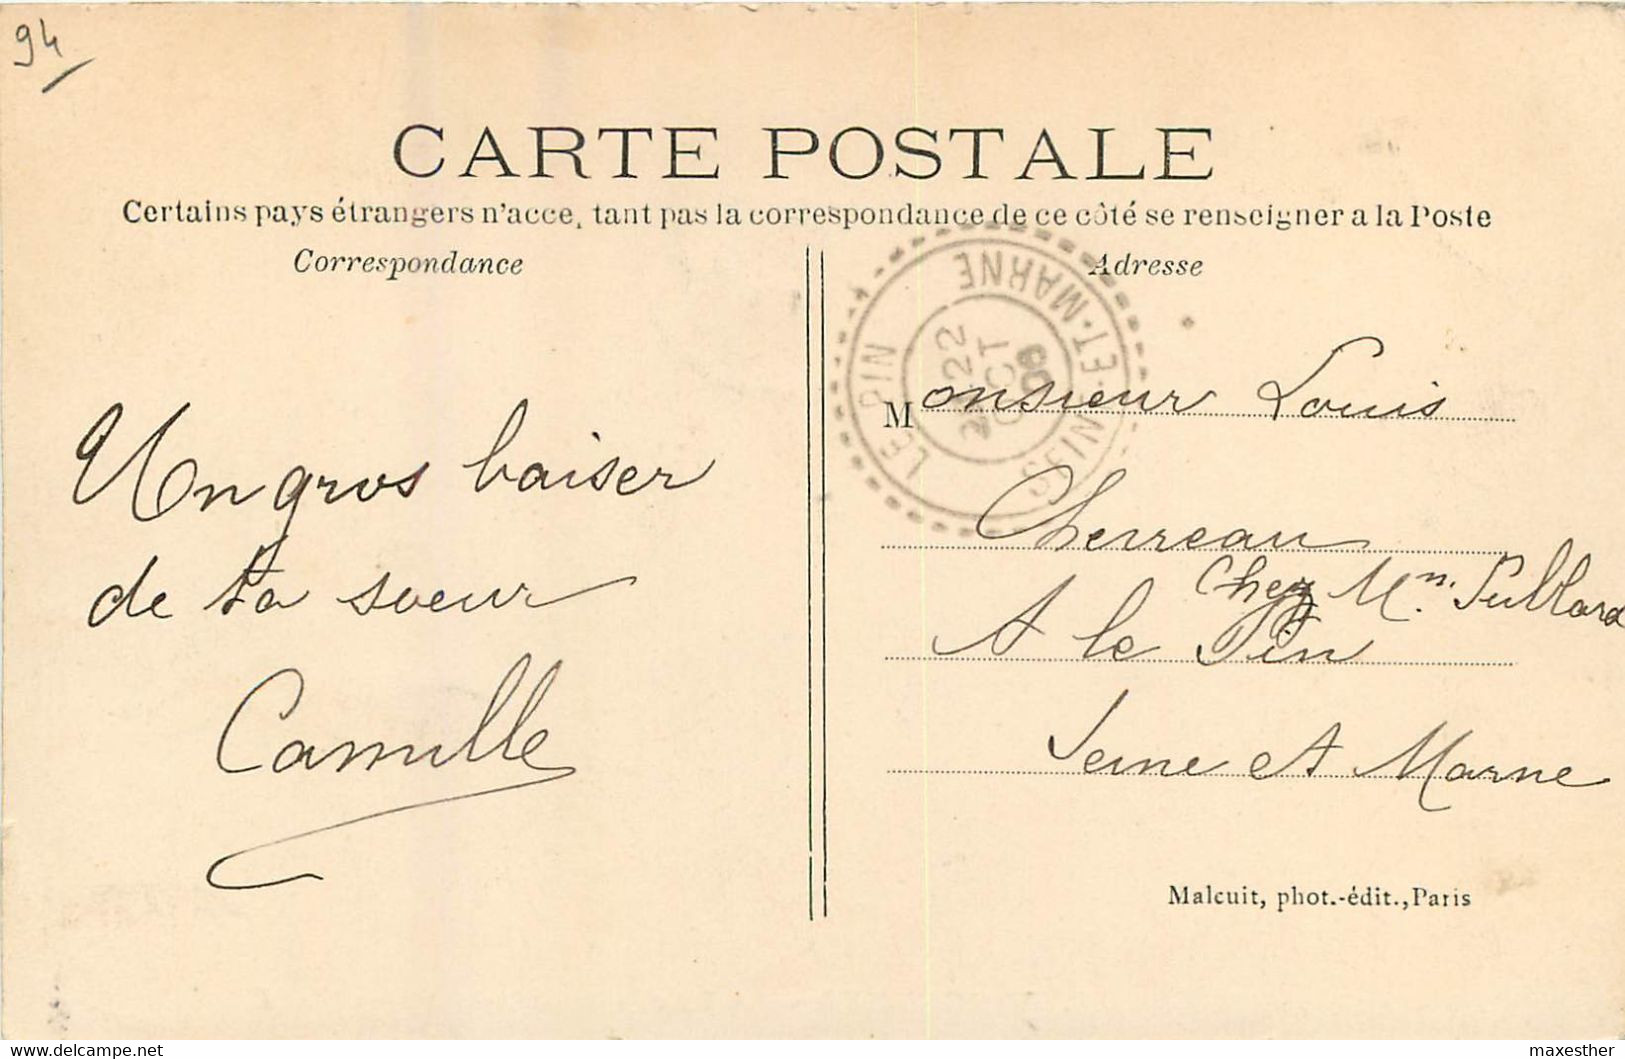 94
CARTE POSTALE
Certains pays étrangers n'acce, tant pas la correspondance de ce côté se renseigner a la Poste
Correspondance
Adresse
LE PIN
SEINE-ET-MARNE
22
OCT
Un gros baiser
de ta soeur
Camille
Monsieur Louis
Cherreau
Chez Mn.
A le Pin
Seine et Marne
Malcuit, phot.-édit., Paris
delcampe.net
maxesther